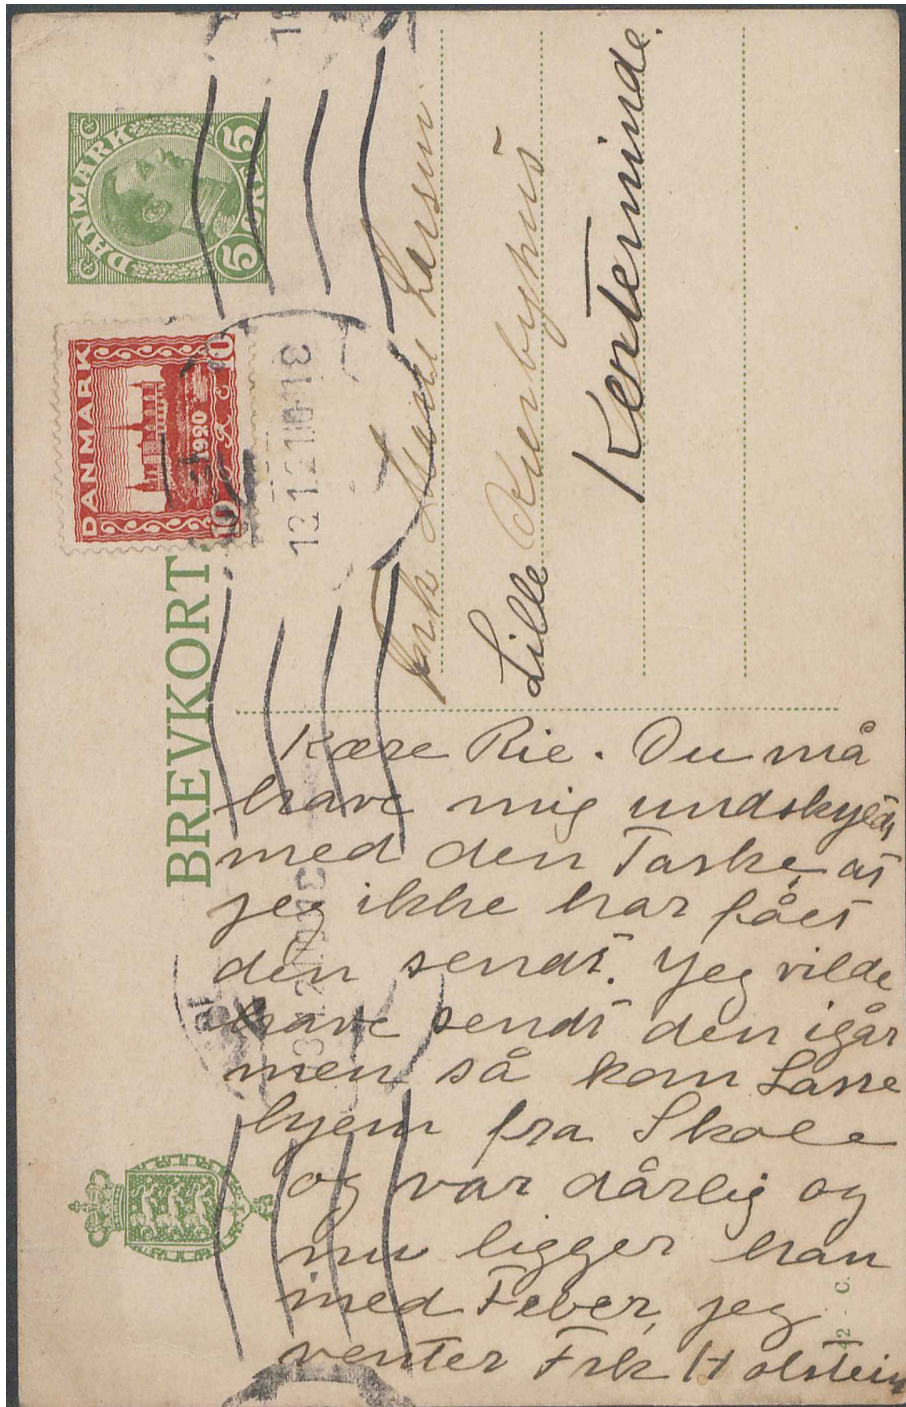 DANMARK
5 ØRE 5
DANMARK
10 1920 10
12.1.21.10-1E
BREVKORT
Frk Marie Larsen.
Lille Kærbyhus
Kerteminde.
Kære Rie. Du må
have mig undskyldt
med den Taske, at
jeg ikke har fået
den sendt. Jeg vilde
have sendt den igår
men så kom Lasse
hjem fra Skole
og var dårlig og
nu ligger han
med Feber, jeg
venter Frk Holstein
C.